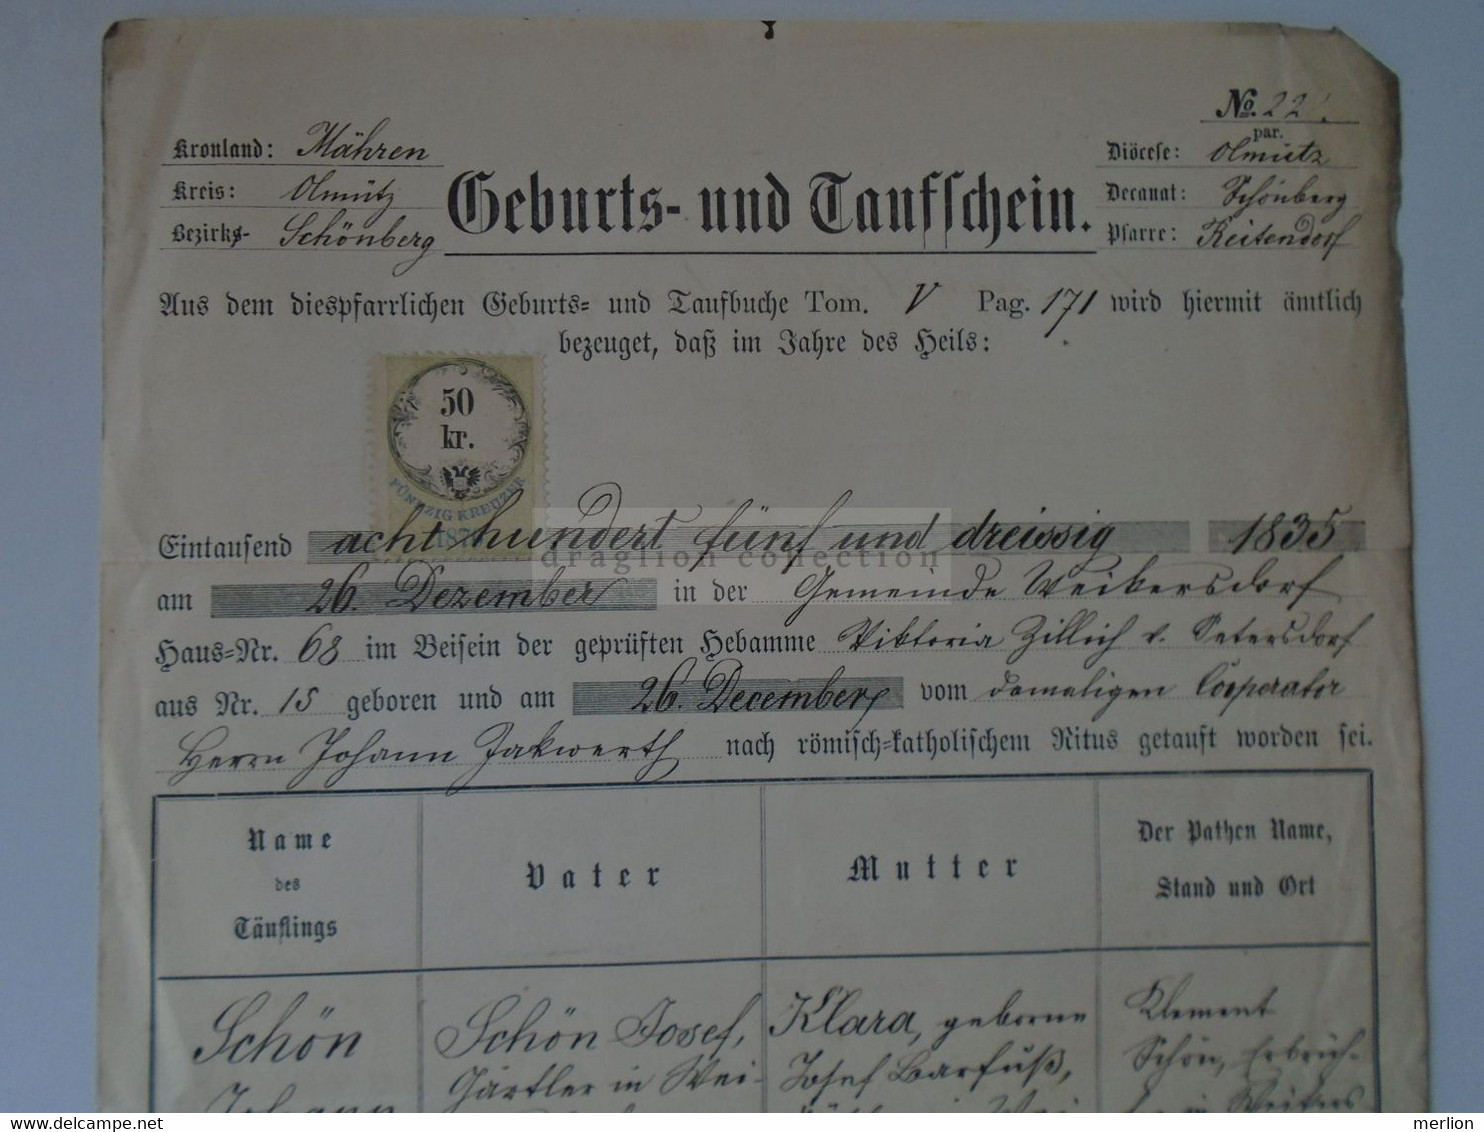 No. 22
Kronland: Mähren
Kreis: Olmütz
Bezirks- Schönberg
Geburts- und Taufschein.
par.
Diöcese: Olmütz
Decanat: Schönberg
Pfarre: Reitendorf
Aus dem diespfarrlichen Geburts- und Taufbuche Tom. V Pag. 171 wird hiermit ämtlich
bezeuget, daß im Jahre des Heils:
50
kr.
FÜNFZIG KREUZER
Eintausend acht hundert fünf und dreissig 1835
dragilon collection
am 26. Dezember in der Gemeinde Weikersdorf
Haus-Nr. 68 im Beisein der geprüften Hebamme Viktoria Zillich v. Petersdorf
aus Nr. 15 geboren und am 26. December vom damaligen Cooperator
Herrn Johann Jakwerth nach römisch-katholischem Ritus getauft worden sei.
Name
des
Täuflings
Vater
Mutter
Der Pathen Name,
Stand und Ort
Schön
Johann
Schön Josef,
Gärtler in Wei-
Klara, geborne
Josef Barfuß,
Klement
Schön, Erbrich-
ter in Weikers
merlion